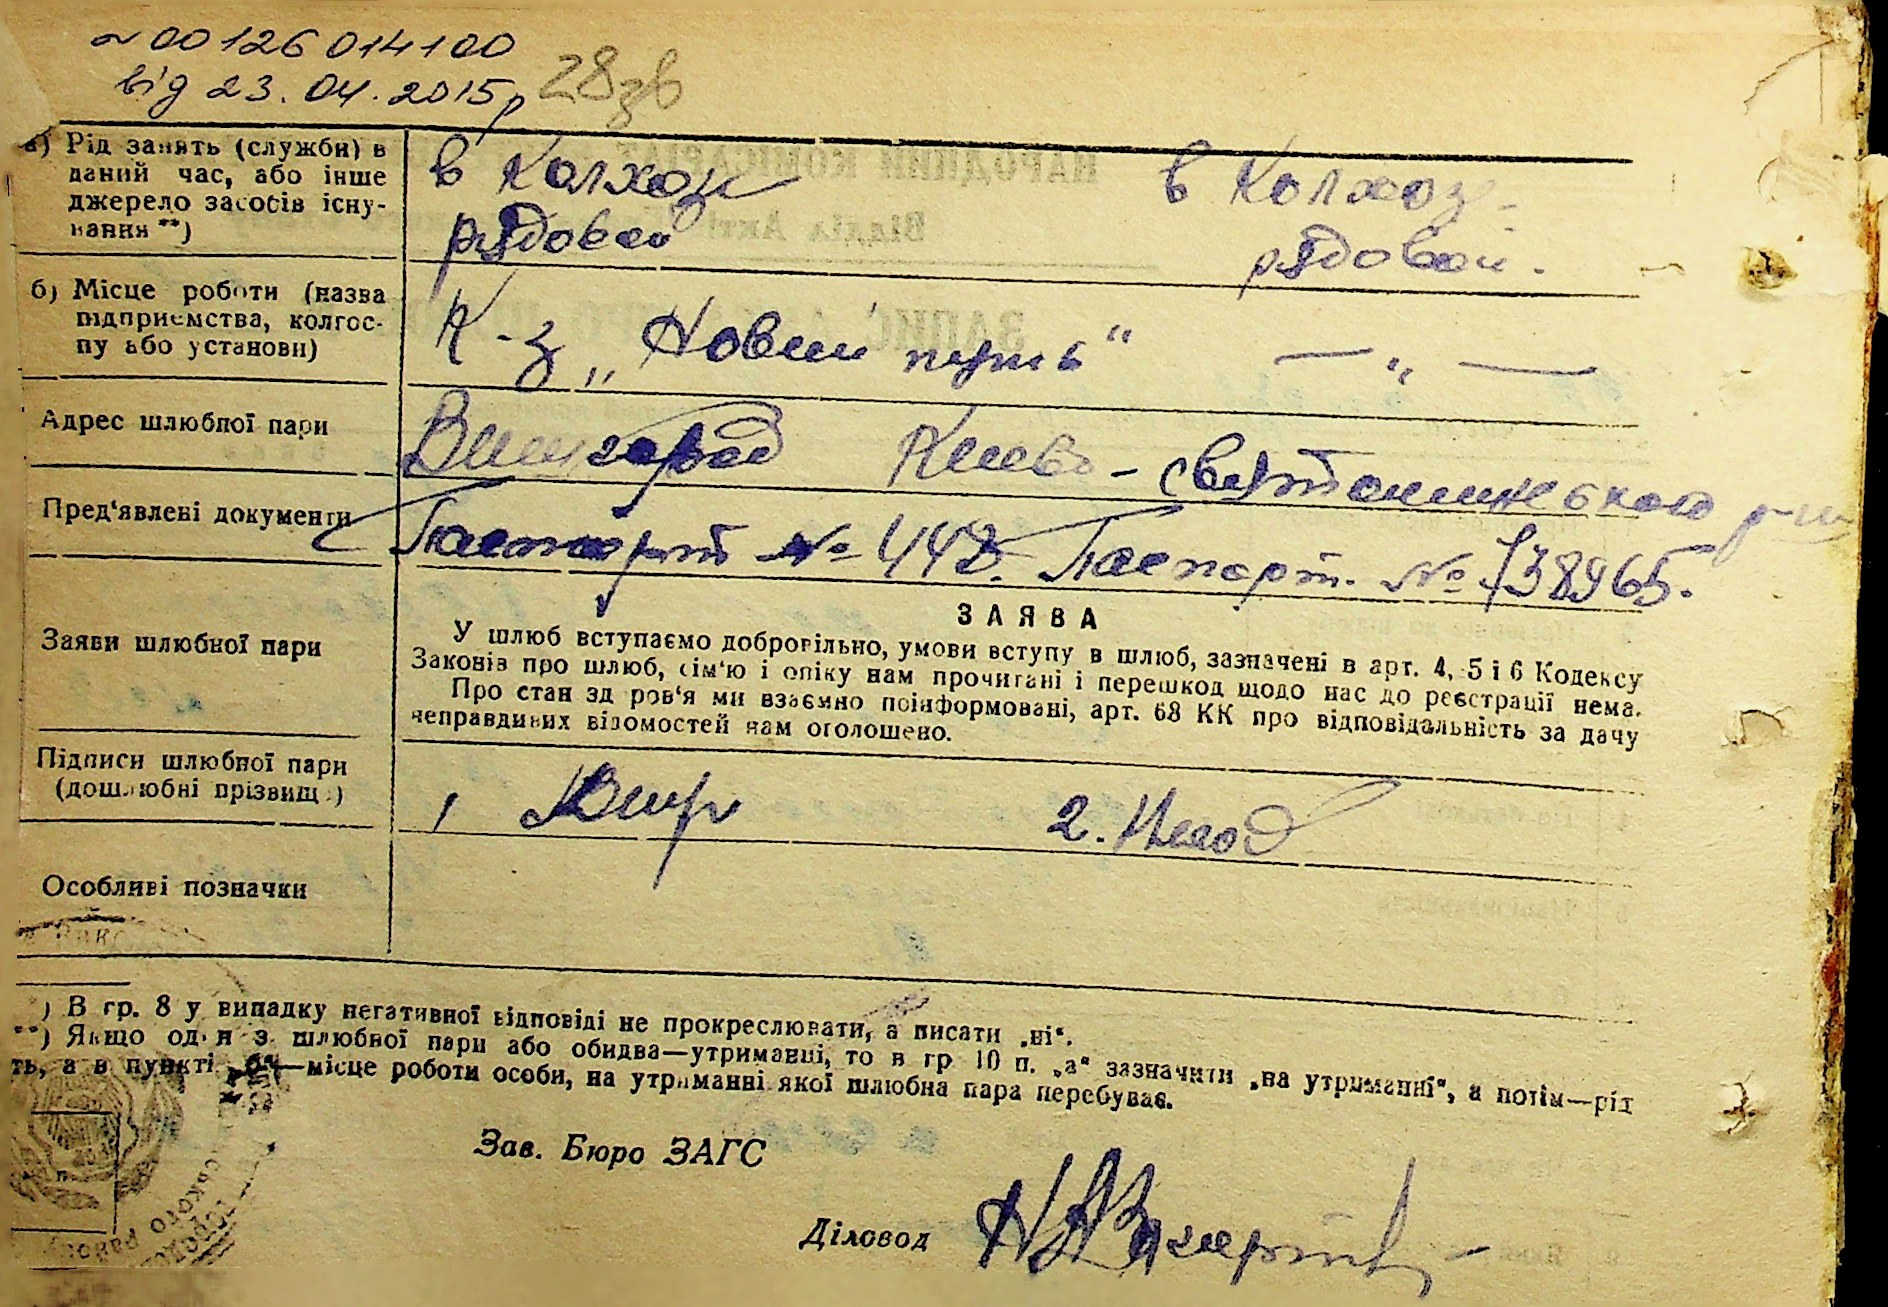 № 00126014100
від 23.04.2015р
28зв
а) Рід занять (служби) в
даний час, або інше
джерело засобів існу-
вання **)
в Колхозі
рядовой
в Колхоз-
рядовой.
б) Місце роботи (назва
підприємства, колгос-
пу або установи)
К-з „Новий путь“ — „ —
Адрес шлюбної пари
Вишгород Києво-Святошинського р-ну
Пред'явлені документи
Паспорт № 442. Паспорт. № 738965.
Заяви шлюбної пари
ЗАЯВА
У шлюб вступаємо добровільно, умови вступу в шлюб, зазначені в арт. 4, 5 і 6 Кодексу
Законів про шлюб, сім'ю і опіку нам прочитані і перешкод щодо нас до реєстрації нема.
Про стан здоров'я ми взаємно поінформовані, арт. 68 КК про відповідальність за дачу
неправдивих відомостей нам оголошено.
Підписи шлюбної пари
(дошлюбні прізвища)
1
2.
Особливі позначки
*) В гр. 8 у випадку негативної відповіді не прокреслювати, а писати „ні“.
**) Якщо один з шлюбної пари або обидва—утриманці, то в гр 10 п. „а“ зазначити „на утриманні“, а потім—рід
ть, а в пункті „б“—місце роботи особи, на утриманні якої шлюбна пара перебуває.
Зав. Бюро ЗАГС
Діловод